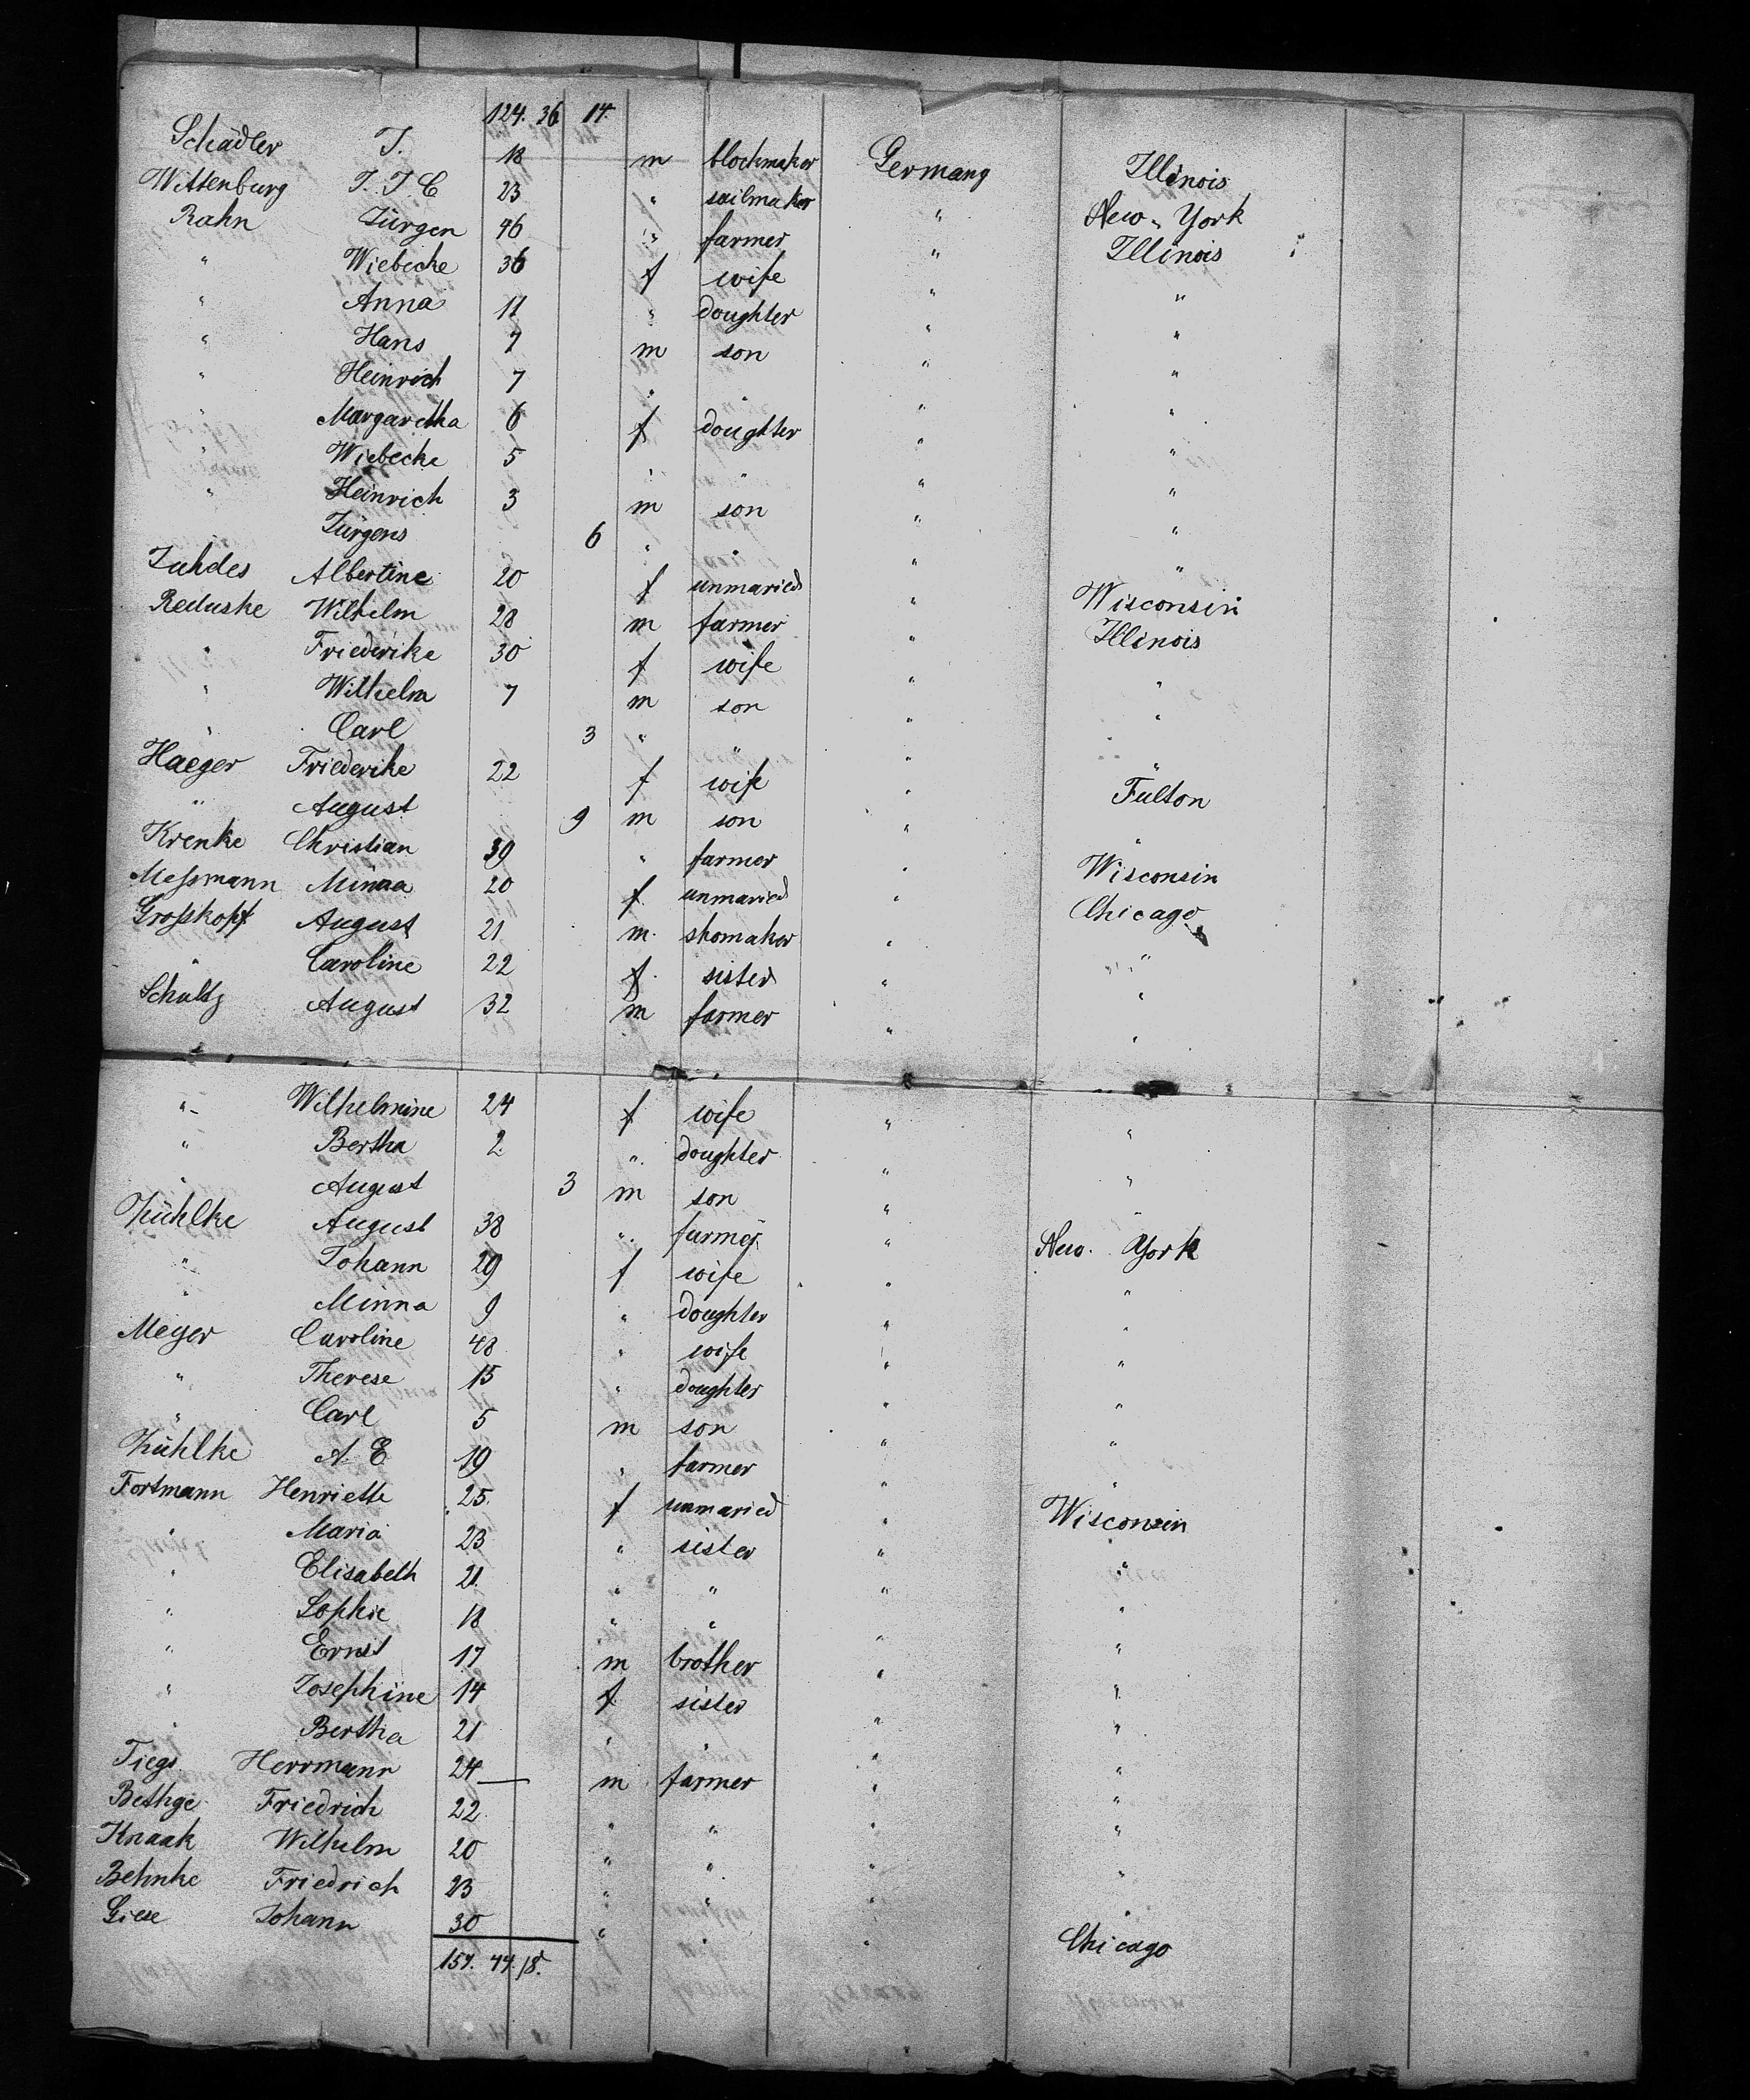 124. 36 14.
Schädler J. 18 m blockmaker Germany Illinois
Wittenburg J. J C 23 " sailmaker " New-York
Rahn Jürgen 46 " farmer " Illinois
" Wiebecke 36 f wife " "
" Anna 11 " doughter " "
" Hans 9 m son " "
" Heinrich 7 " " " "
" Margaretha 6 f doughter " "
" Wiebecke 5 " " " "
" Heinrich 3 m son " "
Jürgens 6 " " " "
Juhdes Albertine 20 f unmaried " Wisconsin
Reduske Wilhelm 28 m farmer " Illinois
" Friederike 30 f wife " "
" Wilhelm 7 m son " "
" Carl 3 " " " "
Haeger Friederike 22 f wife " Fulton
" August 9 m son " "
Krenke Christian 39 " farmer " Wisconsin
Meſsmann Minna 20 f unmaried " Chicago
Groſskopf August 21 m. shomaker " "
" Caroline 22 f. sister " "
Schultz August 32 m farmer " "
" Wilhelmine 24 f wife " "
" Bertha 2 " doughter " "
" August 3 m son " "
Zühlke August 38 " farmer " New York
" Johann 29 f wife " "
" Minna 9 " doughter " "
Meyer Caroline 48 " wife " "
" Therese 15 " doughter " "
" Carl 5 m son " "
Zühlke A. E 19 " farmer " "
Fortmann Henriette 25. f unmaried " Wisconsin
" Maria 23 " sister " "
" Elisabeth 21. " " " "
" Sophie 18 " " " "
" Ernst 17 m brother " "
" Josephine 14 f sister " "
" Bertha 21 " " " "
Tiegs Herrmann 24 m farmer " "
Bethge Friedrich 22 " " " "
Knaak Wilhelm 20 " " " "
Behnke Friedrich 23 " " " "
Giese Johann 30 " " " Chicago
157. 44. 18.